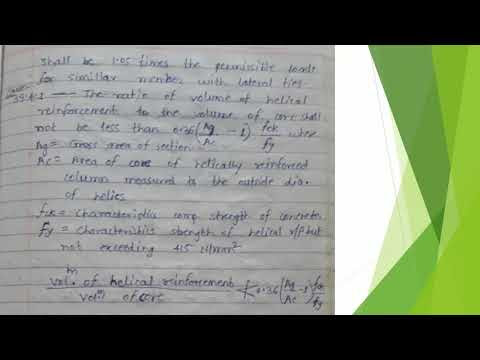 shall be 1.05 times the permissible loads
for simillar member with lateral ties.
39.4.1 — The ratio of volume of helical
reinforcement to the volume of core shall
not be less than 0.36 (Ag/Ac - 1) fck/fy where
Ag = Gross area of section
Ac = Area of core of helically reinforced
column measured to the outside dia.
of helics
fck = characteristic comp strength of concrete
fy = characteristics strength of helical r/f but
not exceeding 415 N/mm²
volm of helical reinforcement / volm of core ≮ 0.36 (Ag/Ac - 1) fck/fy